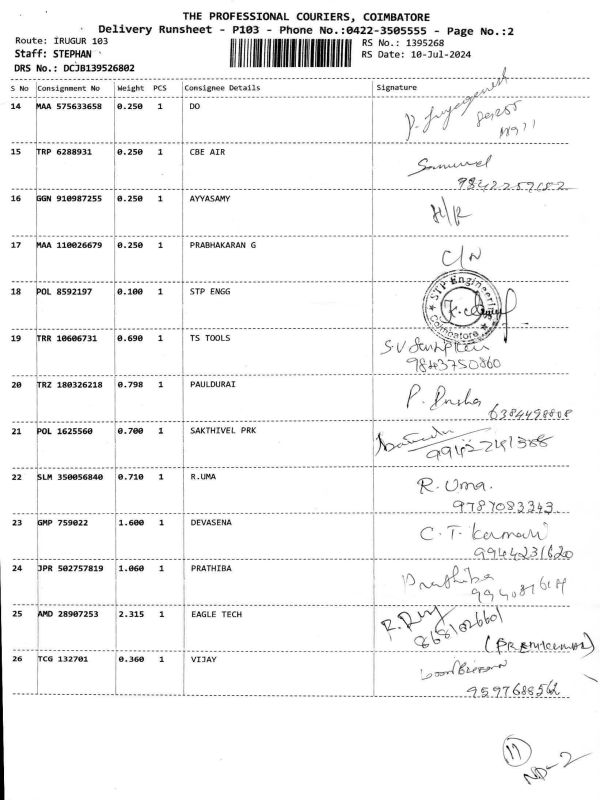 THE PROFESSIONAL COURIERS, COIMBATORE
Delivery Runsheet - P103 - Phone No.:0422-3505555 - Page No.:2
Route: IRUGUR 103
RS No.: 1395268
Staff: STEPHAN
RS Date: 10-Jul-2024
DRS No.: DCJB139526802
S No Consignment No Weight PCS Consignee Details Signature
14 MAA 575633658 0.250 1 DO
15 TRP 6288931 0.250 1 CBE AIR
16 GGN 910987255 0.250 1 AYYASAMY H/R
17 MAA 110026679 0.250 1 PRABHAKARAN G C/N
18 POL 8592197 0.100 1 STP ENGG
STP Engineering
Coimbatore
19 TRR 10606731 0.690 1 TS TOOLS
9843750860
20 TRZ 180326218 0.798 1 PAULDURAI
21 POL 1625560 0.700 1 SAKTHIVEL PRK
22 SLM 350056840 0.710 1 R.UMA R. Uma.
9787083343
23 GMP 759022 1.600 1 DEVASENA
9944231620
24 JPR 502757819 1.060 1 PRATHIBA Prathiba
25 AMD 28907253 2.315 1 EAGLE TECH
(PREMKUMAR)
26 TCG 132701 0.360 1 VIJAY
9597688562
11
ND-2